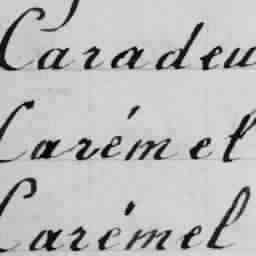 Caradeu
Carémel
Carémel